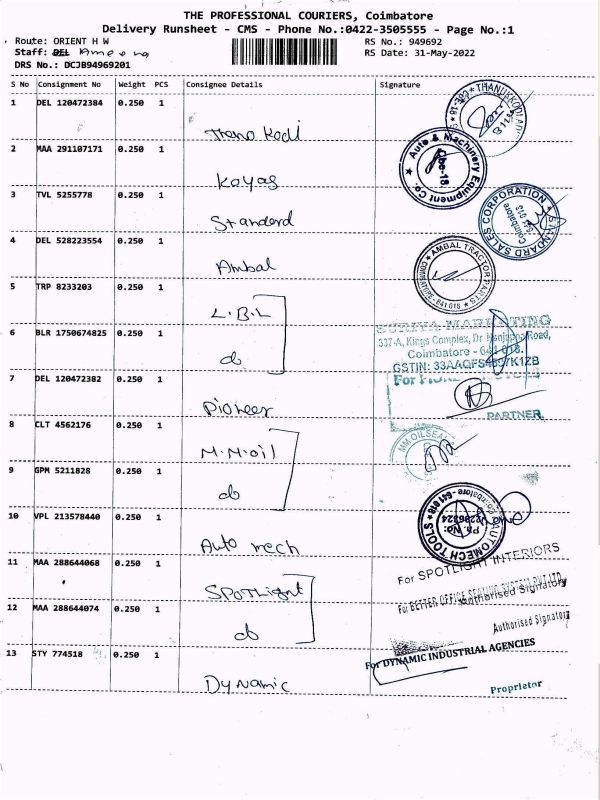 THE PROFESSIONAL COURIERS, Coimbatore
Delivery Runsheet - CMS - Phone No.:0422-3505555 - Page No.:1
Route: ORIENT H W
RS No.: 949692
Staff: DEL
RS Date: 31-May-2022
DRS No.: DCJB94969201
S No Consignment No Weight PCS Consignee Details Signature
1 DEL 120472384 0.250 1
Thanukodi
2 MAA 291107171 0.250 1
Koyas
3 TVL 5255778 0.250 1
Standerd
4 DEL 528223554 0.250 1
Ambal
5 TRP 8233203 0.250 1
L.B.L
6 BLR 1750674825 0.250 1
do
7 DEL 120472382 0.250 1
Pioneer
8 CLT 4562176 0.250 1
M.M.oil
9 GPM 5211828 0.250 1
do
10 VPL 213578440 0.250 1
Auto mech
11 MAA 288644068 0.250 1
SPOTLight
12 MAA 288644074 0.250 1
do
13 STY 774518 0.250 1
Dynamic
Auto & Machinery Equipment Co.
Cbe-18.
STANDARD SALES CORPORATION
Coimbatore
641 018
AMBAL TRACTOR PARTS
COIMBATORE - 641 018
SURIYA MARKETING
337-A, Kings Complex, Dr Nanjappa Road,
Coimbatore - 641 018.
GSTIN:
For
PARTNER
MM OILSEAL
AUTOMECH TOOLS
Coimbatore - 641 018
Ph. No:
For SPOTLIGHT INTERIORS
Authorised Signatory
For BETTER OFFICE
Authorised Signatory
For DYNAMIC INDUSTRIAL AGENCIES
Proprietor